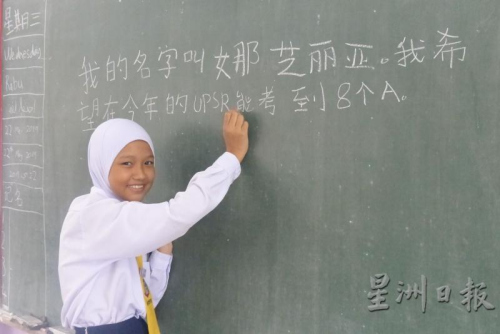 星期三
Wednesday
Rabu
我的名字叫娜那芝丽亚。我希
望在今年的UPSR能考到8个A。
星洲日报